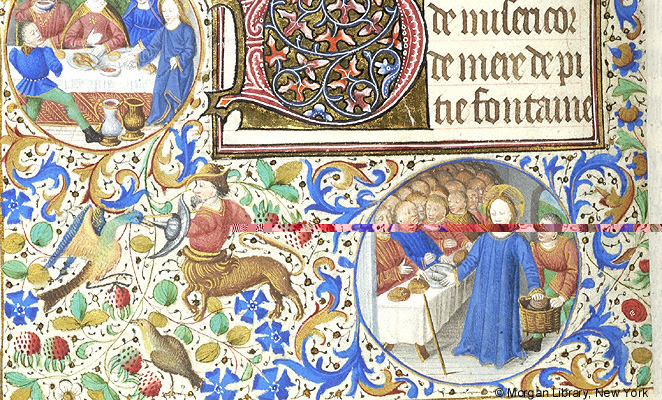 de misericor
de mere de pi
tie fontaine
© Morgan Library, New York